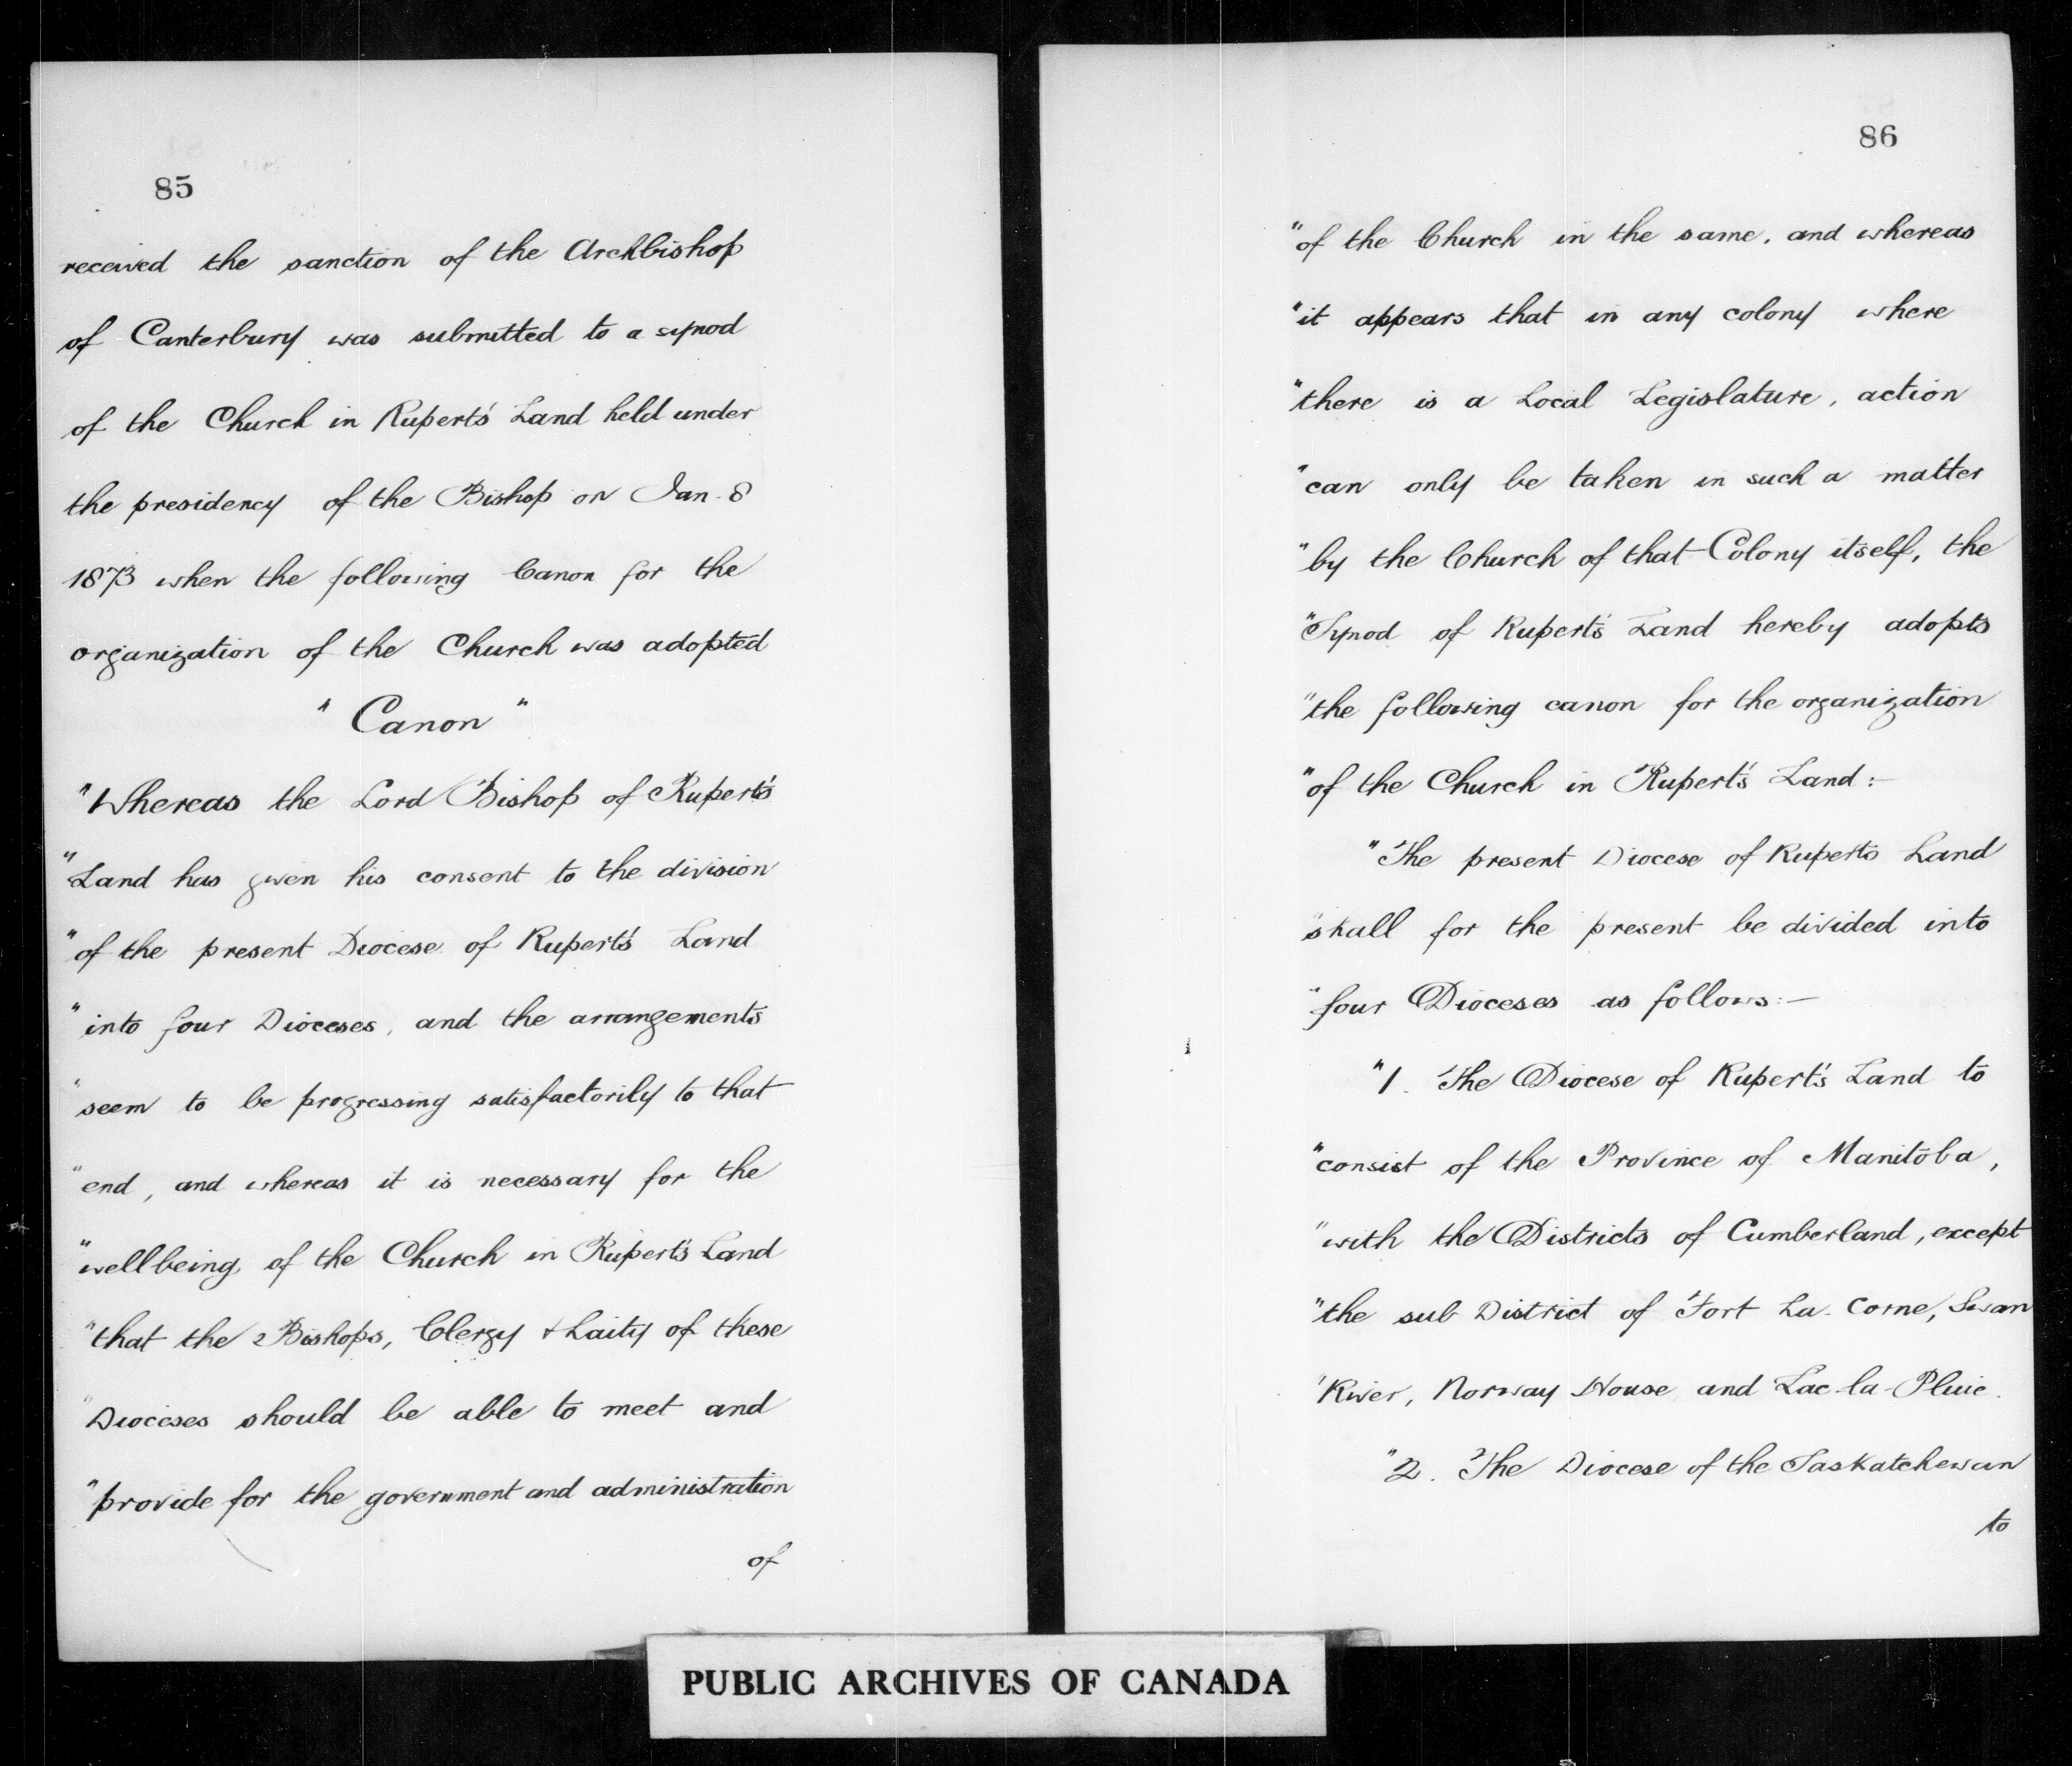 85
received the sanction of the Archbishop
of Canterbury was submitted to a synod
of the Church in Rupert's Land held under
the presidency of the Bishop on Jan. 8
1873 when the following Canon for the
organization of the Church was adopted
"Canon"
"Whereas the Lord Bishop of Rupert's
"Land has given his consent to the division
"of the present Diocese of Rupert's Land
"into four Dioceses, and the arrangements
"seem to be progressing satisfactorily to that
"end, and whereas it is necessary for the
"wellbeing of the Church in Rupert's Land
"that the Bishops, Clergy & Laity of these
"Dioceses should be able to meet and
"provide for the government and administration
of
86
"of the Church in the same, and whereas
"it appears that in any colony where
"there is a Local Legislature, action
"can only be taken in such a matter
"by the Church of that Colony itself, the
"Synod of Rupert's Land hereby adopts
"the following canon for the organization
"of the Church in Rupert's Land:-
"The present Diocese of Ruperts Land
"shall for the present be divided into
"four Dioceses as follows:-
"1. The Diocese of Rupert's Land to
"consist of the Province of Manitoba,
"with the Districts of Cumberland, except
"the sub District of Fort La. Corne, Swan
"River, Norway House and Lac-la-Pluie.
"2. The Diocese of the Saskatchewan
to
PUBLIC ARCHIVES OF CANADA